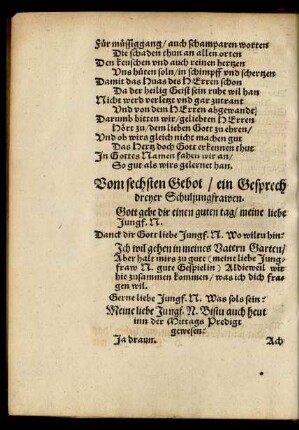 Für müssiggang/ auch schamparen worten
Die schaden thun an allen orten
Den keuschen vnd auch reinen hertzen
Vns hüten soln/ in schimpff vnd schertzen
Damit das Haus des HErren schon
Da der heilig Geist sein ruhe wil han
Nicht werd verletzt vnd gar zutrant
Vnd von dem HErren abgewandt/
Darumb bitten wir/ geliebten HErren
Hört zu/ dem lieben Gott zu ehren/
Vnd ob wirs gleich nicht machen gut
Das Hertz doch Gott erkennen thut
In Gottes Namen fahen wir an/
So gut als wirs gelernet han.
Vom sechsten Gebot/ ein Gesprech
dreyer Schuljungfrawen.
Gott gebe dir einen guten tag/ meine liebe
Jungf. N.
Danck dir Gott liebe Jungf. N. Wo wiltu hin?
Ich wil gehen in meines Vatern Garten/
Aber halt mirs zu gute (meine liebe Jung-
fraw N. gute Gespielin) Aldieweil wir
hie zusammen kommen/ was ich dich fra-
gen wil.
Gerne liebe Jungf. N. Was sols sein?
Meine liebe Jungf. N. Bistu auch heut
inn der Mittags Predigt
gewesen?
Ja draun.
Ach